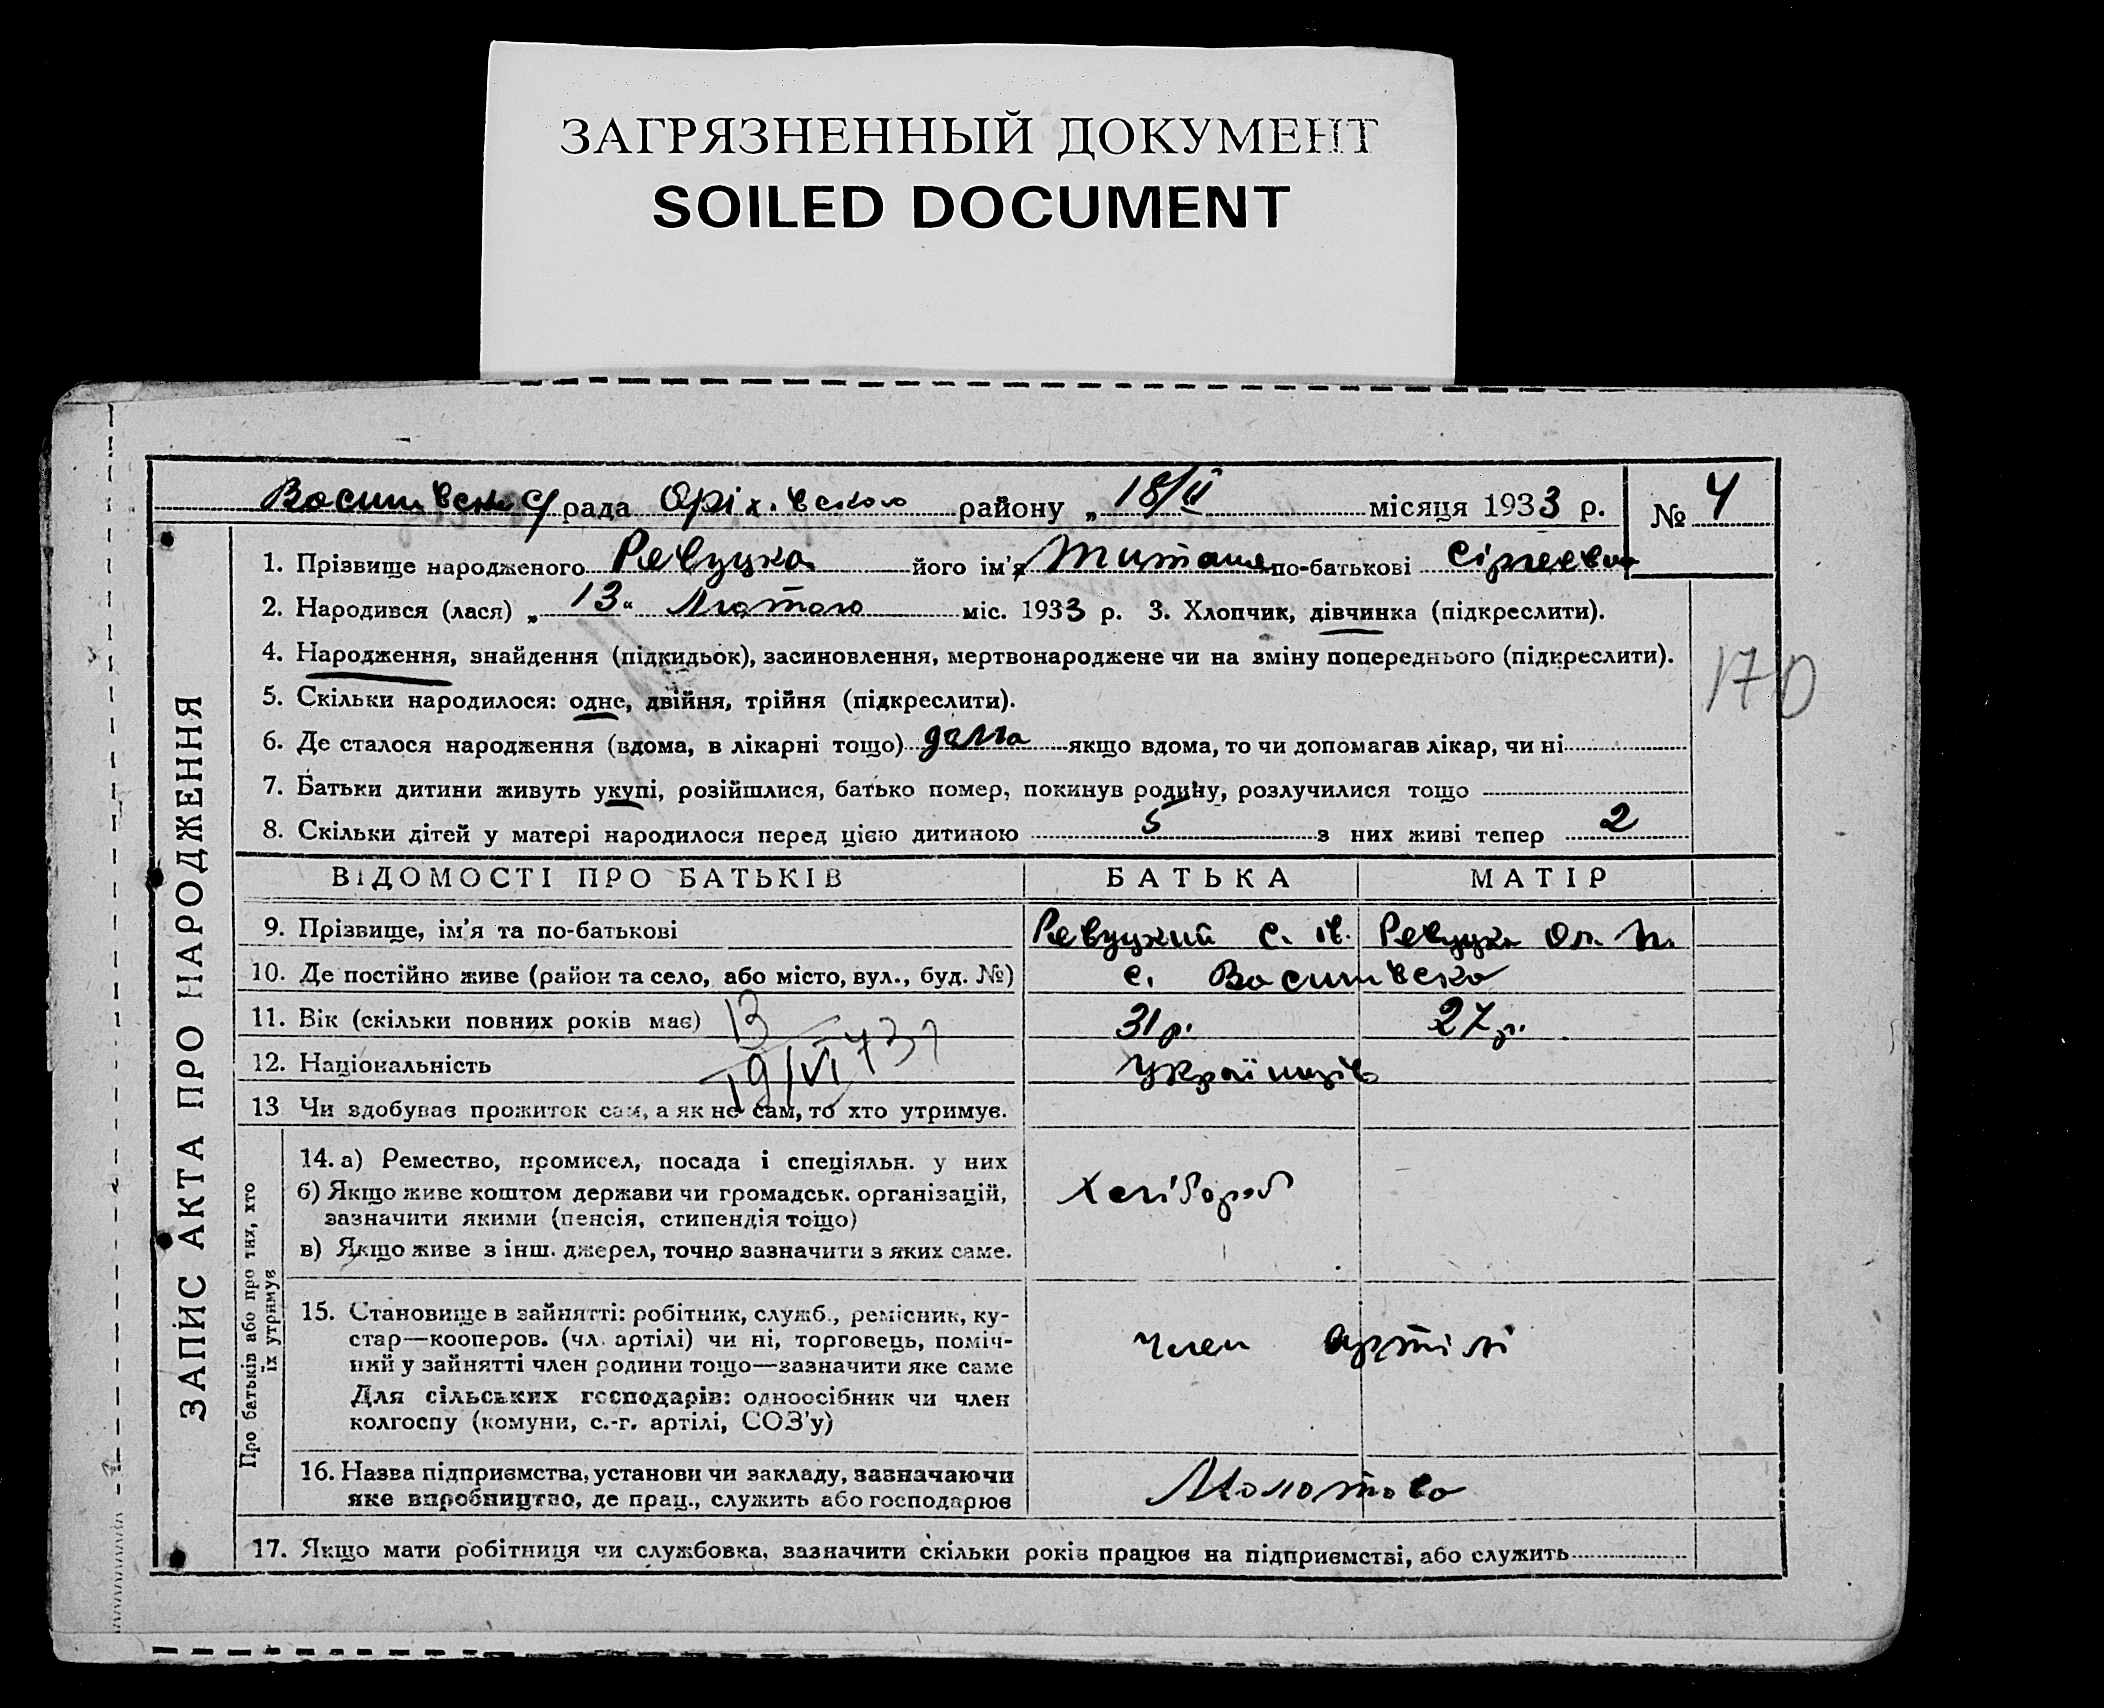 ЗАГРЯЗНЕННЫЙ ДОКУМЕНТ
SOILED DOCUMENT
рада Оріхівського району „ 18/II місяця 1933 р. № 4
1. Прізвище народженого Ревуцка його ім'я по-батькові
2. Народився (лася) „ 13 " Лютого міс. 1933 р. 3. Хлопчик, дівчинка (підкреслити).
4. Народження, знайдення (підкидьок), засиновлення, мертвонароджене чи на зміну попереднього (підкреслити).
5. Скільки народилося: одне, двійня, трійня (підкреслити).
6. Де сталося народження (вдома, в лікарні тощо) дома якщо вдома, то чи допомагав лікар, чи ні
7. Батьки дитини живуть укупі, розійшлися, батько помер, покинув родину, розлучилися тощо
8. Скільки дітей у матері народилося перед цією дитиною 5 з них живі тепер 2
170
ЗАПИС АКТА ПРО НАРОДЖЕННЯ
ВІДОМОСТІ ПРО БАТЬКІВ БАТЬКА МАТІР
9. Прізвище, ім'я та по-батькові Ревуцкий С. Ів. Ревуцка
10. Де постійно живе (район та село, або місто, вул., буд. №) с.
11. Вік (скільки повних років має) 31 р. 27 р.
12. Національність Українців
13 Чи здобуває прожиток сам, а як не сам, то хто утримує.
Про батьків або про тих, хто
їх утримує
14. а) Ремество, промисел, посада і спеціяльн. у них
б) Якщо живе коштом держави чи громадськ. організацій,
зазначити якими (пенсія, стипендія тощо)
Хлібороб
в) Якщо живе з інш. джерел, точно зазначити з яких саме.
15. Становище в зайнятті: робітник, служб., ремісник, ку-
стар—кооперов. (чл. артілі) чи ні, торговець, поміч-
ний у зайнятті член родини тощо—зазначити яке саме
Для сільських господарів: одноосібник чи член
колгоспу (комуни, с.-г. артілі, СОЗ'у)
член артілі
16. Назва підприємства, установи чи закладу, зазначаючи
яке виробництво, де прац., служить або господарює
Молотова
17. Якщо мати робітниця чи службовка, зазначити скільки років працює на підприємстві, або служить